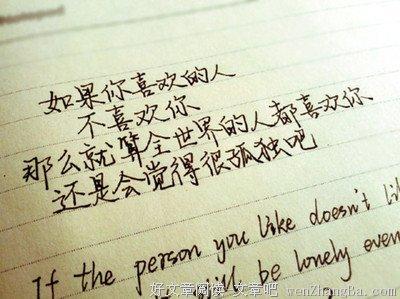 如果你喜欢的人
不喜欢你
那么就算全世界的人都喜欢你
还是会觉得很孤独吧
If the person you like doesn't
will be lonely even
好文章阅读 文章吧 wenZhangBa.com